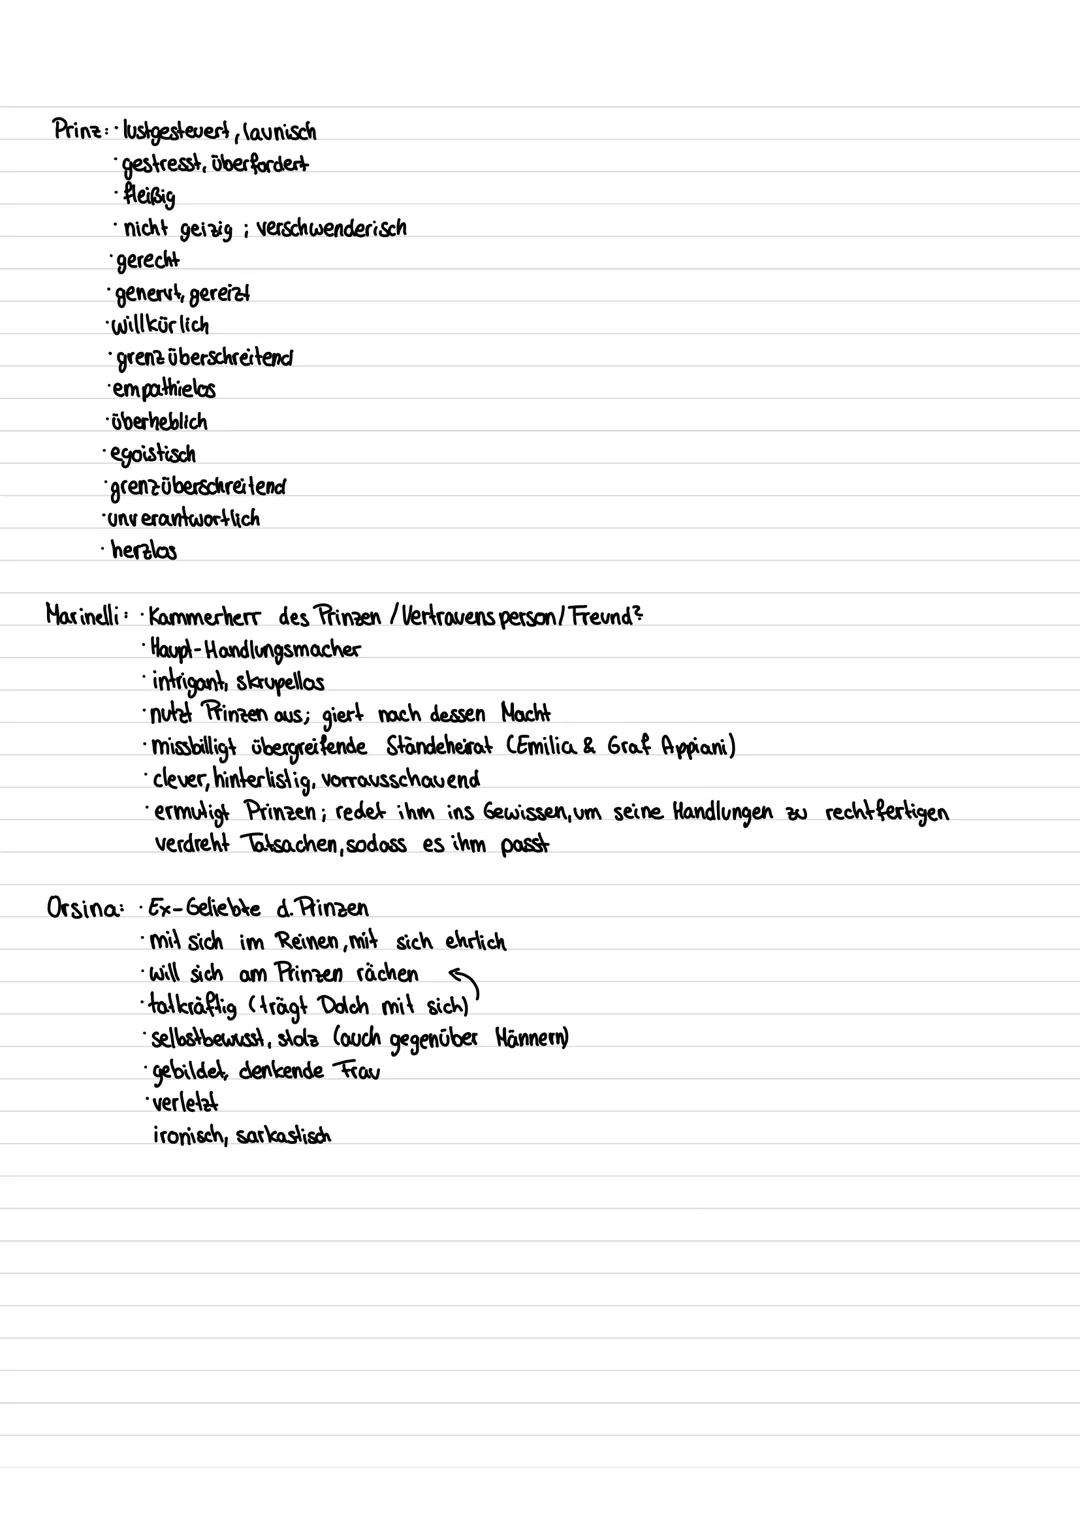 Prinz: · lustgesteuert, launisch
· gestresst, überfordert
· fleißig
· nicht geizig ; verschwenderisch
· gerecht
· genervt, gereizt
· willkürlich
· grenzüberschreitend
· empathielos
· überheblich
· egoistisch
· grenzüberschreitend
· unverantwortlich
· herzlos
Marinelli: · Kammerherr des Prinzen / Vertrauensperson / Freund?
· Haupt-Handlungsmacher
· intrigant, skrupellos
· nutzt Prinzen aus; giert nach dessen Macht
· missbilligt übergreifende Ständeheirat (Emilia & Graf Appiani)
· clever, hinterlistig, vorrausschauend
· ermutigt Prinzen ; redet ihm ins Gewissen, um seine Handlungen zu rechtfertigen
verdreht Tatsachen, sodass es ihm passt
Orsina: · Ex-Geliebte d. Prinzen
· mit sich im Reinen, mit sich ehrlich
· will sich am Prinzen rächen
· tatkräftig (trägt Dolch mit sich)
· selbstbewusst, stolz (auch gegenüber Männern)
· gebildet, denkende Frau
· verletzt
ironisch, sarkastisch